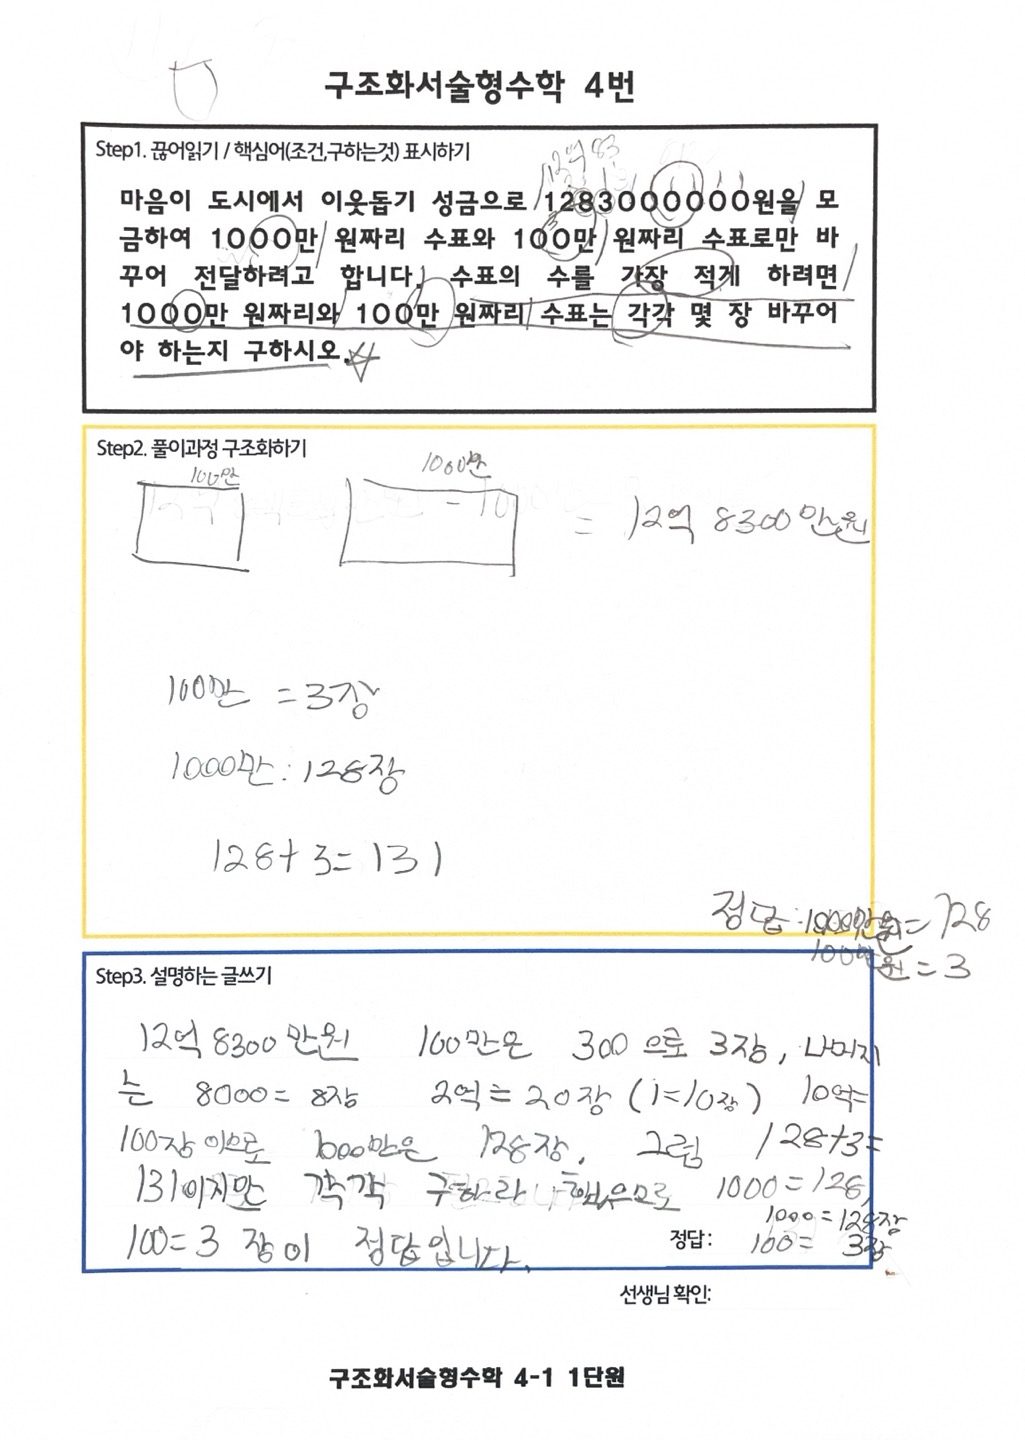 구조화서술형수학 4번
Step1. 끊어읽기 / 핵심어(조건,구하는것) 표시하기
12억 83
마음이 도시에서 이웃돕기 성금으로 1283000000원을 모
금하여 1000만 원짜리 수표와 100만 원짜리 수표로만 바
꾸어 전달하려고 합니다. 수표의 수를 가장 적게 하려면
1000만 원짜리와 100만 원짜리 수표는 각각 몇 장 바꾸어
야 하는지 구하시오.
Step2. 풀이과정 구조화하기
100만 1000만
= 12억 8300만원
100만 = 3장
1000만 : 128장
128+3=131
정답 : 1000만원=128
100만원=3
Step3. 설명하는 글쓰기
12억 8300만원 100만은 300으로 3장, 나머지
는 8000=8장 2억=20장 (1=10장) 10억=
100장 이므로 1000만은 128장. 그럼 128+3=
131이지만 각각 구하라 했으므로 1000=128,
100=3 장이 정답입니다.
1000=128장
정답: 100= 3장
선생님 확인:
구조화서술형수학 4-1 1단원